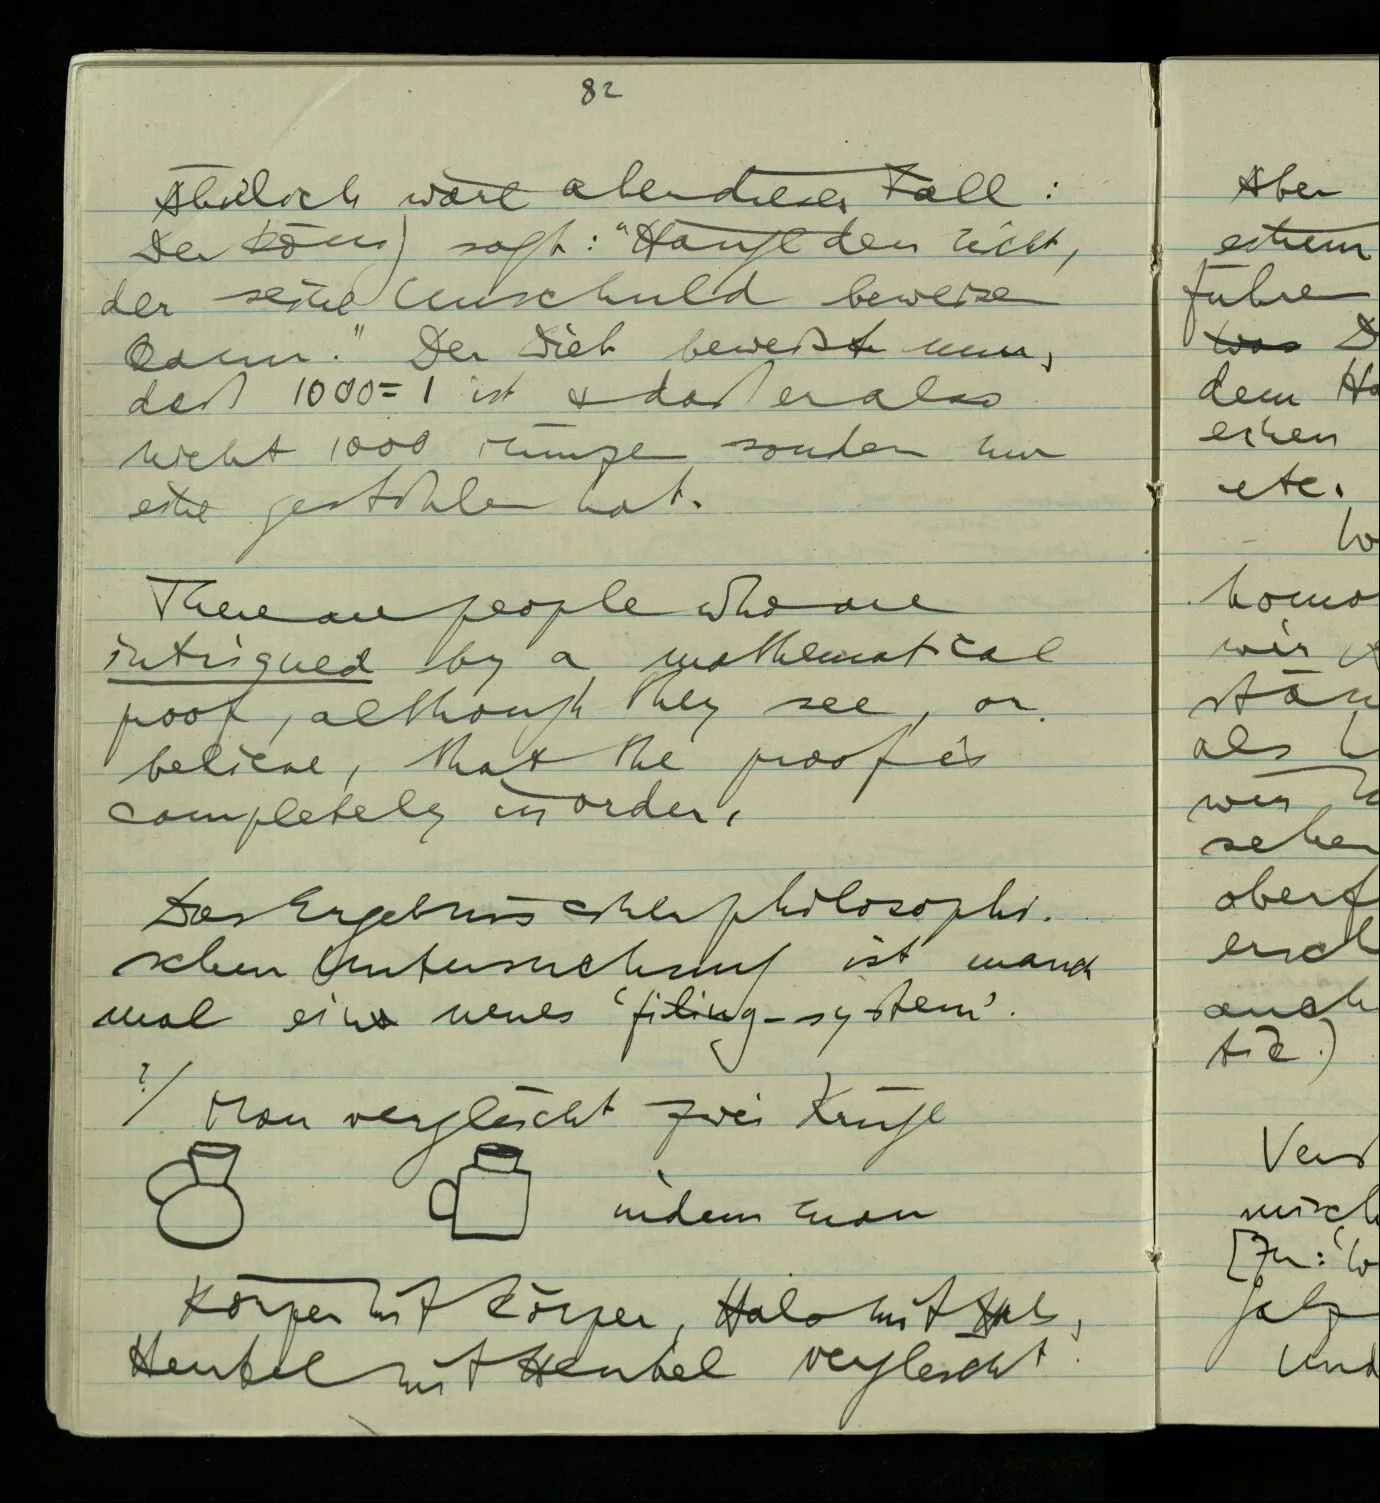 82
Ähnlich wäre aber dieser Fall:
Der König sagt: "Hängt den nicht,
der seine Unschuld beweisen
kann." Der Dieb beweist nun,
daß 1000=1 ist & daß er also
nicht 1000 Münzen sondern nur
eine gestohlen hat.
There are people who are
intrigued by a mathematical
proof, although they see, or
believe, that the proof is
completely in order.
Das Ergebnis einer philosophi-
schen Untersuchung ist manch
mal ein neues 'filing-system'.
?/ Man vergleicht zwei Krüge
indem man
Körper mit Körper, Hals mit Hals,
Henkel mit Henkel vergleicht.
Aber
führe
was D
dem
einen
etc.
homo
wir
als
wir
sehen
oberf
ersch
auch
tiz.)
Vers
misch
[Zu: 'W
Und